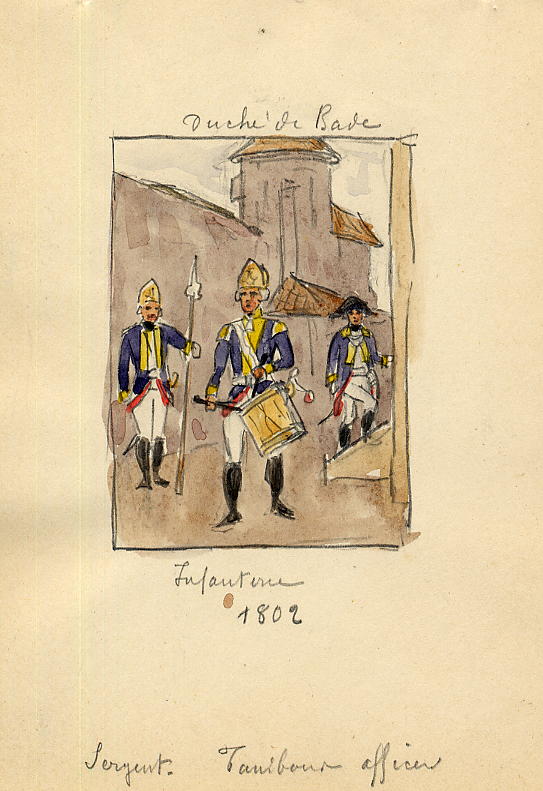 Duché de Bade
Infanterie
1802
Sergent. Tambour officer